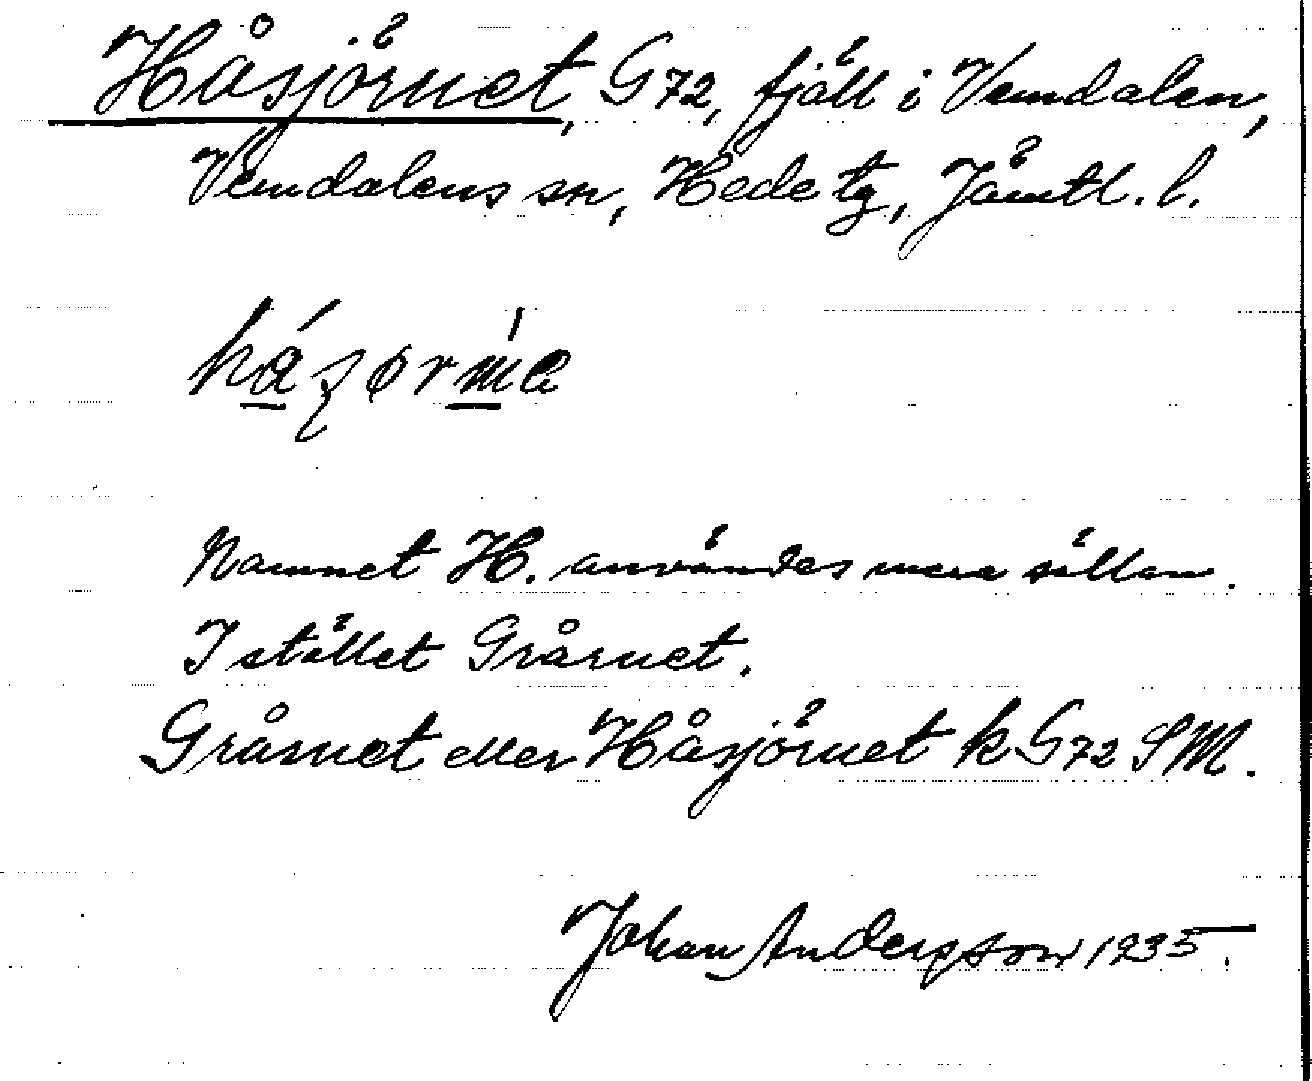 Håsjörnet, G72, fjäll i Vemdalen,
Vemdalens sn, Hede tg, Jämtl. l.
Namnet H. användes mera sällan.
I stället Grårnet.
Grårnet eller Håsjörnet k G72 SM.
Johan Andersson 1935.